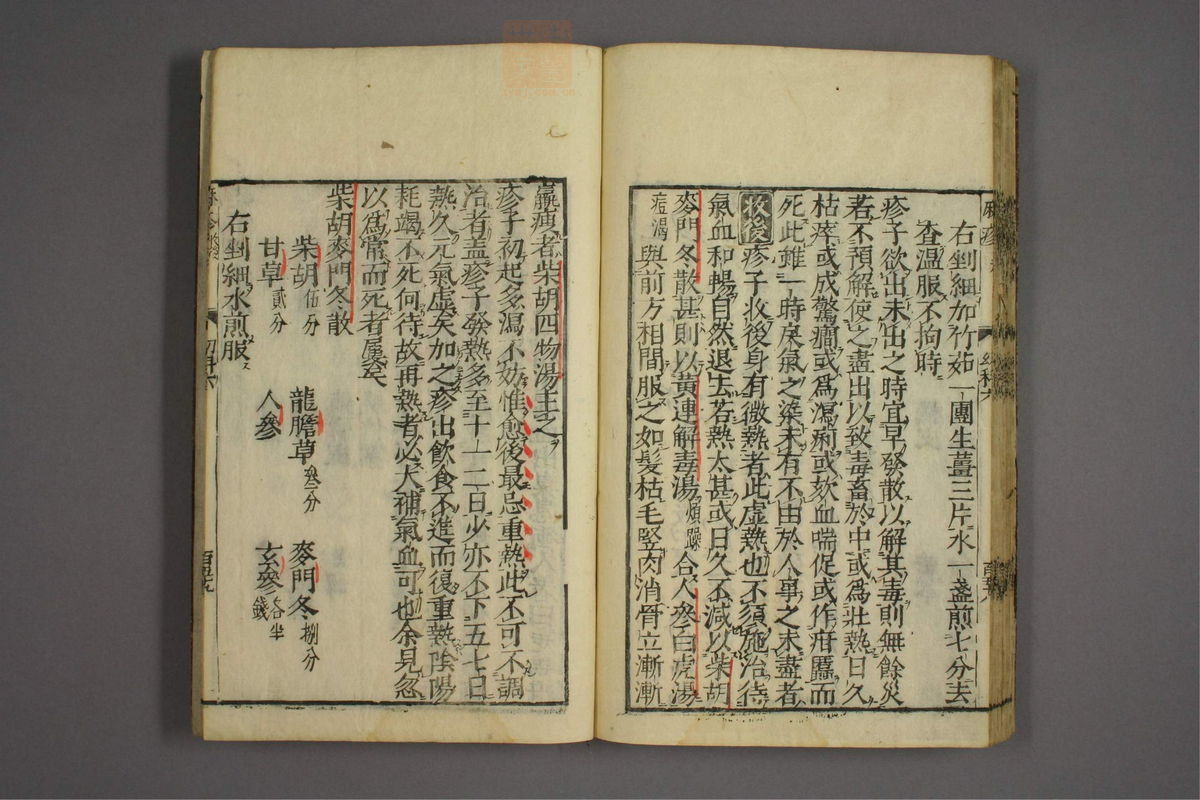 右剉細加竹茹一團生薑三片水一盞煎七分去
查溫服不拘時
疹子欲出未出之時宜早發散以解其毒則無餘災
若不預解使之盡出以致毒畜於中或爲壯熱日久
枯瘁或成驚癇或爲瀉痢或欬血喘促或作疳䘌而
死此雖一時戾氣之染未有不由於人事之未盡者
收後疹子收後身有微熱者此虛熱也不須施治待
氣血和暢自然退去若熱太甚或日久不減以柴胡
麥門冬散甚則以黃連解毒湯煩躁合人參白虎湯
痘渴與前方相間服之如髮枯毛竪肉消骨立漸漸
羸瘦者柴胡四物湯主之
疹子初起多瀉不妨惟愈後最忌重熱此不可不調
治者蓋疹子發熱多至十一二日少亦不下五七日
熱久元氣虛矣加之疹出飲食不進而復重熱陰陽
耗竭不死何待故再熱者必大補氣血可也余見忽
以爲常而死者屢矣
柴胡麥門冬散
柴胡伍分 龍膽草叁分 麥門冬捌分
甘草貳分 人參 玄參各半錢
右剉細水煎服